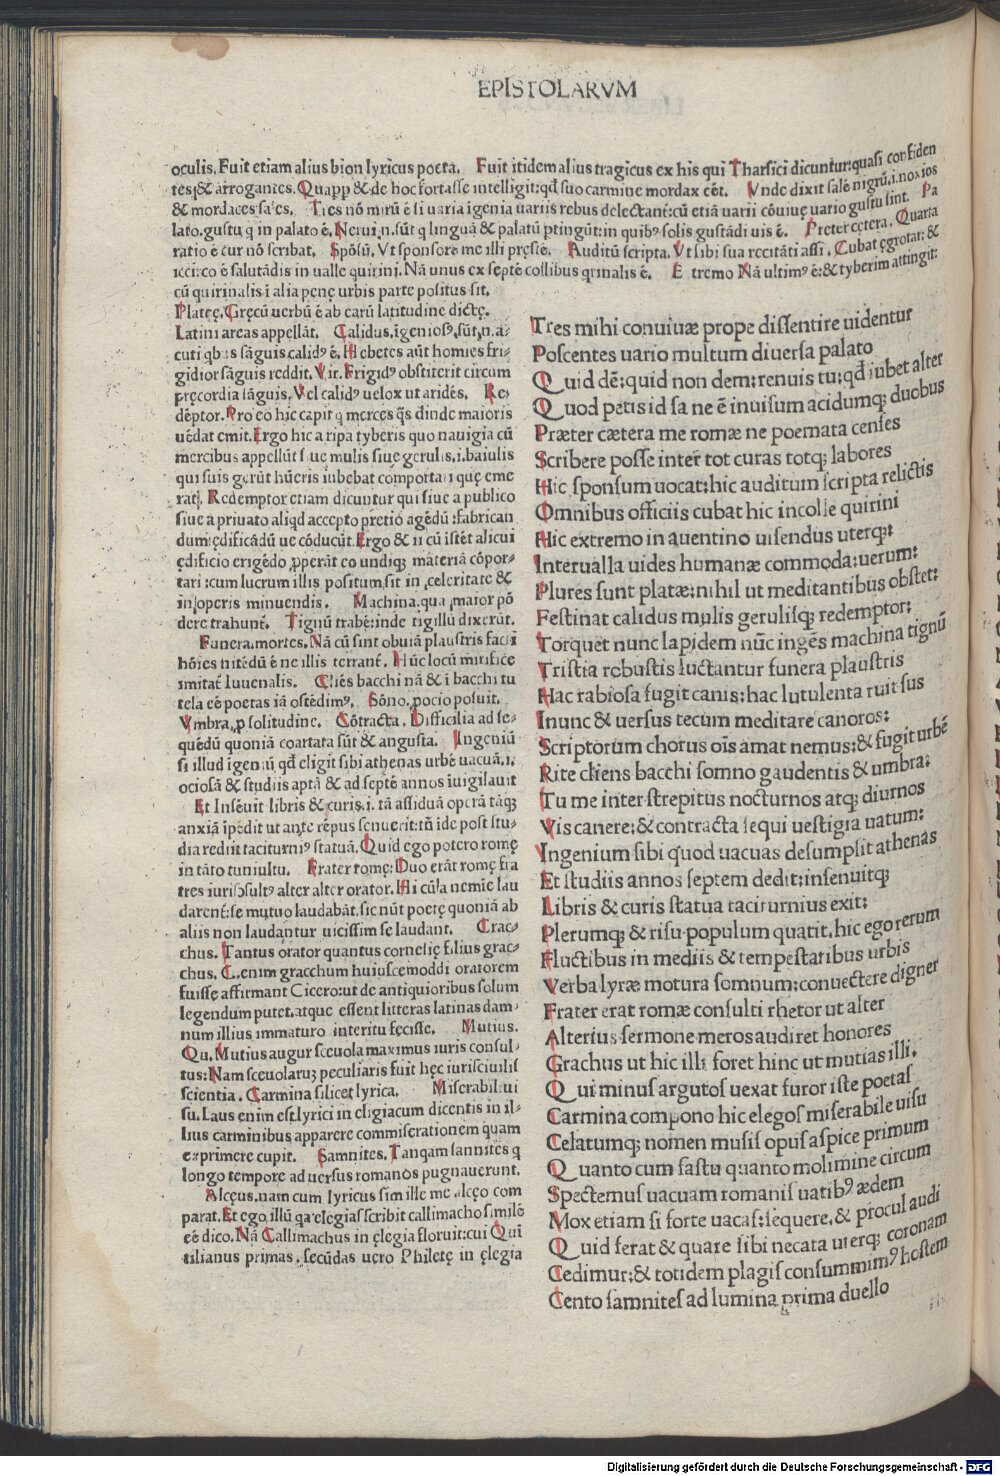 EPISTOLARVM
oculis. Fuit etiam alius bion lyricus poeta. Fuit itidem alius tragicus ex his qui Tharsici dicuntur: quasi confiden
tes; & arrogantes. Quapp & de hoc fortasse intelligit: qđ suo carmine mordax eēt. Vnde dixit sale nigrū. i. noxios
& mordaces sales. Tres nō mirū ē si uaria igenia uariis rebus delectant: cū etiā uarii cōuiuę uario gustu sint. Pa
lato. gustu q in palato ē. Nerui. n. sūt q linguā & palatū ptingūt: in quibꝰ solis gustādi uis ē. Preter cetera. Quarta
ratio ē cur nō scribat. Spōsū. Vt sponsore me illi pręste. Auditū scripta. Vt sibi sua recitāti assi. Cubat ęgrotat: &
icci: co ē salutādis in ualle quirini. Nā unus ex septē collibus qrinalis ē. Extremo Nā ultimꝰ ē: & tyberim attingit:
cū quirinalis i alia penę urbis parte positus sit.
Platęę. Gręcū uerbū ē ab earū latitudine dictę.
Latini areas appellāt. Calidus. igeniosꝰ. sūt. n. a-
cuti qbus sāguis calidꝰ ē. Hebetes aūt homies fri-
gidior sāguis reddit. Vir. Frigidꝰ obstiterit circum
pręcordia sāguis. Vel calidꝰ uelox ut aridēs. Re
dēptor. Pro eo hic capit q merces q̄s dinde maioris
uēdat emit. Ergo hic a ripa tyberis quo nauigia cū
mercibus appellūt siue mulis siue gerulis. i. baiulis
qui suis gerūt hūeris iubebat comportari quę eme
rat. Redemptor etiam dicuntur qui siue a publico
siue a priuato aliqd accepto pretio agēdū: fabrican
dum: ędificādū ue cōducūt. Ergo & ii cū istēt alicui
ędificio erigēdo ꝓperāt eo undiqꝫ materiā cōpor-
tari: cum lucrum illis positum sit in celeritate &
in operis minuendis. Machina. qua maior pō
dere trahunt. Tignū trabē: inde tigillū dixerūt.
Funera. mortes. Nā cū sint obuiā plaustris facti
hōies nitēdū ē ne illis terrant. Hūc locū mirifice
imitat Iuuenalis. Cliēs bacchi nā & i bacchi tu
tela eē poetas iā ostēdimꝰ. Sōno. ꝓ ocio posuit.
Vmbra. ꝓ solitudine. Cōtracta. Difficilia ad se-
quēdū quoniā coartata sūt & angusta. Ingeniū
si illud igeniū qđ eligit sibi athenas urbē uacuā. i.
ociosā & studiis aptā & ad septē annos iuigilauit
Et Insēuit libris & curis. i. tā assiduā operā tāqꝫ
anxiā ipēdit ut ante tēpus senuerit: tn ide post stu-
dia rediit taciturniꝰ statuā. Quid ego potero romę
in tāto tumultu. Frater romę: Duo erāt romę fra
tres iurisↄsultꝰ alter alter orator. Hi cū a nemine lau
darent: se mutuo laudabāt. sic nūt poetę quoniā ab
aliis non laudantur uicissim se laudant. Crac-
chus. Tantus orator quantus cornelię filius grac-
chus. C. enim gracchum huiuscemoddi oratorem
fuisse affirmant Cicero: ut de antiquioribus solum
legendum putet. atque essent litteras latinas dam-
num illius immaturo interitu fęcisse. Mutius.
Qu. Mutius augur sceuola maximus iuris consul-
tus: Nam sceuolarꝫ peculiaris fuit hęc iurisciuilis
scientia. Carmina silicet lyrica. Miserabil ui
su. Laus enim est lyrici in eligiacum dicentis in il-
lius carminibus apparere commiserationem quam
exprimere cupit. Samnites. Tanqam sannites q
longo tempore aduersus romanos pugnauerunt.
Alcęus. nam cum lyricus sim ille me alcęo com
parat. Et ego illū qa elegias scribit callimacho similē
eē dico. Nā Callimachus in ęlegia floruit: cui Qui
tilianus primas, secūdas uero Philetę in ęlegia
Tres mihi conuiuæ prope dissentire uidentur
Poscentes uario multum diuersa palato
Quid dē: quid non dem: renuis tu: qđ iubet alter
Quod petis id sa ne ē inuisum acidumqꝫ duobus
Præter cætera me romæ ne poemata censes
Scribere posse inter tot curas totqꝫ labores
Hic sponsum uocat: hic auditum scripta relictis
Omnibus officiis cubat hic in colle quirini
Hic extremo in auentino uisendus uterqꝫ:
Interualla uides humanæ commoda: uerum:
Plures sunt platæ: nihil ut meditantibus obstet:
Festinat calidus mulis gerulisqꝫ redemptor:
Torquet nunc lapidem nūc ingēs machina tignū
Tristia robustis luctantur funera plaustris
Hac rabiosa fugit canis: hac lutulenta ruit sus
Inunc & uersus tecum meditare canoros:
Scriptorum chorus oīs amat nemus: & fugit urbē
Rite cliens bacchi somno gaudentis & umbra:
Tu me inter strepitus nocturnos atqꝫ diurnos
Vis canere: & contracta sequi uestigia uatum:
Ingenium sibi quod uacuas desumpsit athenas
Et studiis annos septem dedit: insenuitqꝫ
Libris & curis statua taciturnius exit:
Plerumqꝫ & risu populum quatit. hic ego rerum
Fluctibus in mediis & tempestatibus urbis
Verba lyræ motura somnum: conuectere digner
Frater erat romæ consulti rhetor ut alter
Alterius sermone meros audiret honores
Grachus ut hic illi foret hinc ut mutias illi.
Qui minus argutos uexat furor iste poetas
Carmina compono hic elegos miserabile uisu
Celatumqꝫ nomen musis opus aspice primum
Quanto cum fastu quanto molimine circum
Spectemus uacuam romanis uatibꝰ ædem
Mox etiam si forte uacas: sequere. & procul audi
Quid ferat & quare sibi necata uterqꝫ coronam
Cedimur: & totidem plagis consummimꝰ hostem
Cento samnites ad lumina prima duello
Digitalisierung gefördert durch die Deutsche Forschungsgemeinschaft - DFG